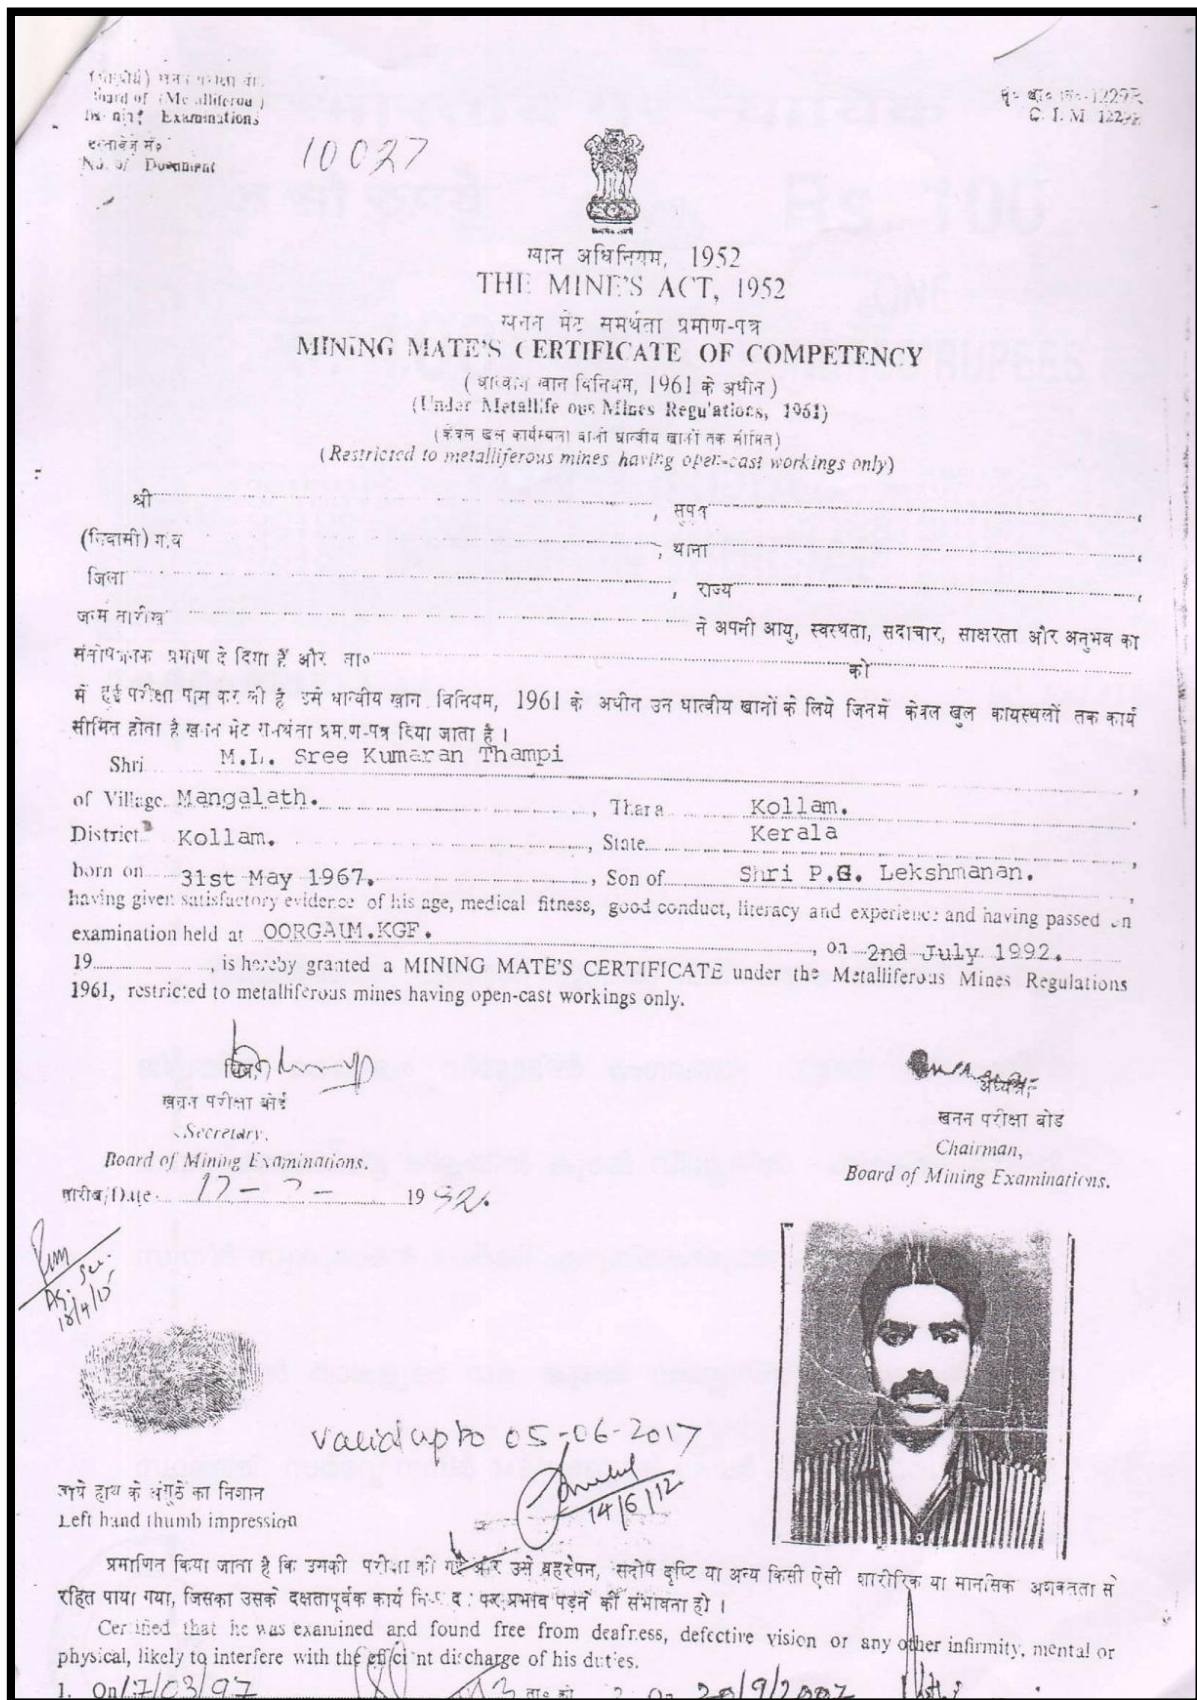 खनन परीक्षा
Board of (Metalliferous)
Examinations
No. of Document
10027
C. I. M 1229
खान अधिनियम, 1952
THE MINE'S ACT, 1952
खनन मेट समर्थता प्रमाण-पत्र
MINING MATE'S CERTIFICATE OF COMPETENCY
खान विनियम, 1961 के अधीन )
(Under Metallife ous Mines Regulations, 1961)
(Restricted to metalliferous mines having open-cast workings only)
श्री , सुपुत्र
(निवासी) , थाना
जिला , राज्य
जन्म तारीख ने अपनी आयु, स्वस्थता, सदाचार, साक्षरता और अनुभव का
प्रमाण दे दिया है और ता० को
में हुई परीक्षा पास कर ली है उसे धात्वीय खान विनियम, 1961 के अधीन उन धात्वीय खानों के लिये जिनमें केवल खुल कार्यस्थलों तक कार्य
सीमित होता है प्रमाण-पत्र दिया जाता है ।
Shri M.L. Sree Kumaran Thampi
of Village Mangalath. , Thara Kollam.
District Kollam. , State Kerala
born on 31st May 1967. , Son of Shri P.G. Lekshmanan.
having given satisfactory evidence of his age, medical fitness, good conduct, literacy and experience and having passed an
examination held at OORGAUM.KGF. , on 2nd July 1992.
19 , is hereby granted a MINING MATE'S CERTIFICATE under the Metalliferous Mines Regulations
1961, restricted to metalliferous mines having open-cast workings only.
खनन परीक्षा बोर्ड
Secretary.
Board of Mining Examinations.
तारीख/Date 1992.
अध्यक्ष,
खनन परीक्षा बोर्ड
Chairman,
Board of Mining Examinations.
valid upto 05-06-2017
14/6/12
बायें हाथ के अंगूठे का निशान
Left hand thumb impression
प्रमाणित किया जाता है कि उसकी परीक्षा की गई और उसे बहरेपन, सदोष दृष्टि या अन्य किसी ऐसी शारीरिक या मानसिक अशक्तता से
रहित पाया गया, जिसका उसके दक्षतापूर्वक कार्य पर प्रभाव पड़ने की संभावना हो ।
Certified that he was examined and found free from deafness, defective vision or any other infirmity, mental or
physical, likely to interfere with the efficient discharge of his duties.
1. On 17/03/97 ता० को 2. On 20/9/2002